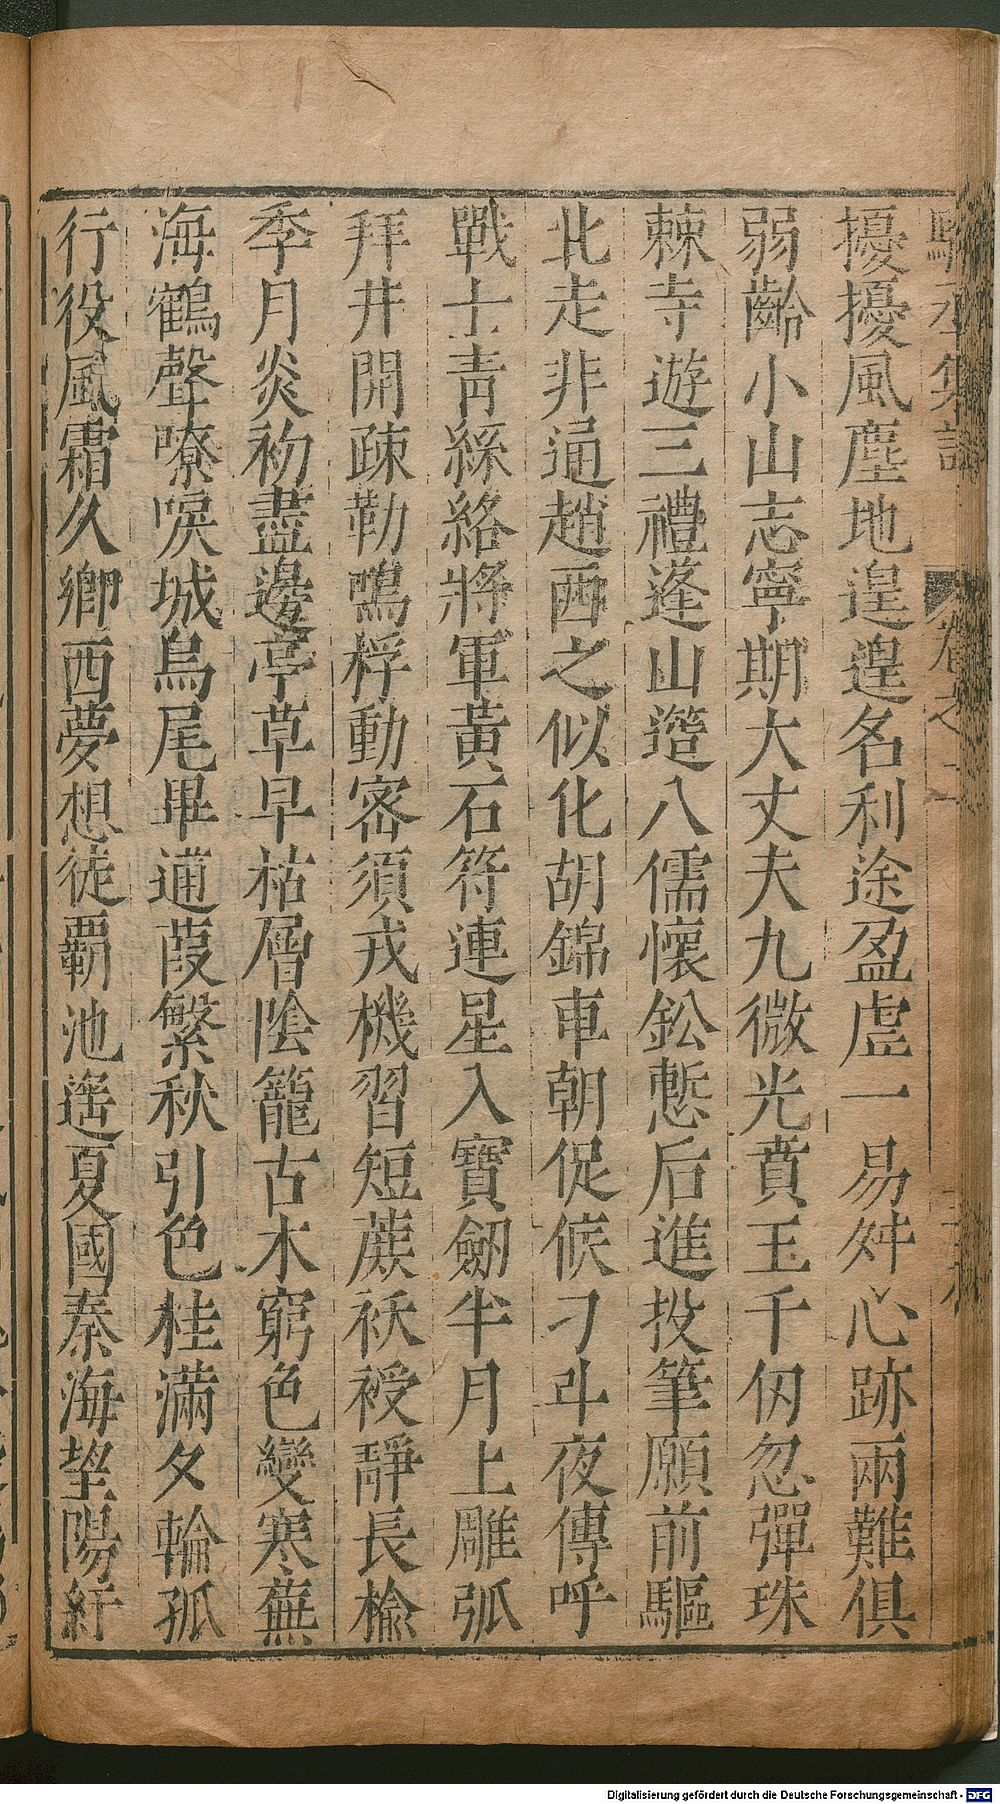 擾擾風塵地遑遑名利途盈虛一易舛心跡兩難俱
弱齡小山志寧期大丈夫九微光賁玉千仞忽彈珠
棘寺遊三禮蓬山簉八儒懷鈆慙后進投筆願前驅
北走非逼趙西之似化胡錦車朝促候刁斗夜傳呼
戰士青絲絡將軍黃石符連星入寶劒半月上雕弧
拜井開疎勒鳴桴動密須戎機習短蔗祅祲靜長楡
季月炎初盡邊亭草早枯層陰籠古木窮色變寒蕪
海鶴聲嘹唳城烏尾畢逋葭繁秋引色桂滿夕輪孤
行役風霜久鄉西夢想徒覇池遙夏國秦海望陽紆
Digitalisierung gefördert durch die Deutsche Forschungsgemeinschaft - DFG